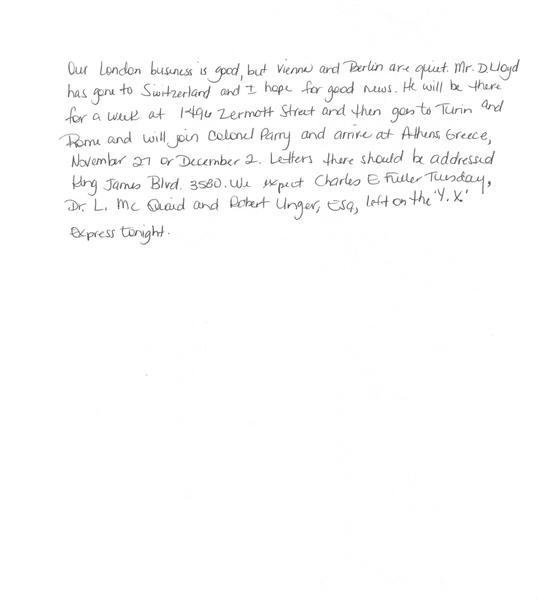 Our London business is good, but Vienna and Berlin are quiet. Mr. D. Lloyd
has gone to Switzerland and I hope for good news. He will be there
for a week at 1496 Zermott Street and then goes to Turin and
Rome and will join Colonel Parry and arrive at Athens, Greece,
November 27 or December 2. Letters there should be addressed
King James Blvd. 3580. We expect Charles E Fuller Tuesday,
Dr. L. Mc Quaid and Robert Unger, Esq, left on the 'Y.X.'
Express tonight.